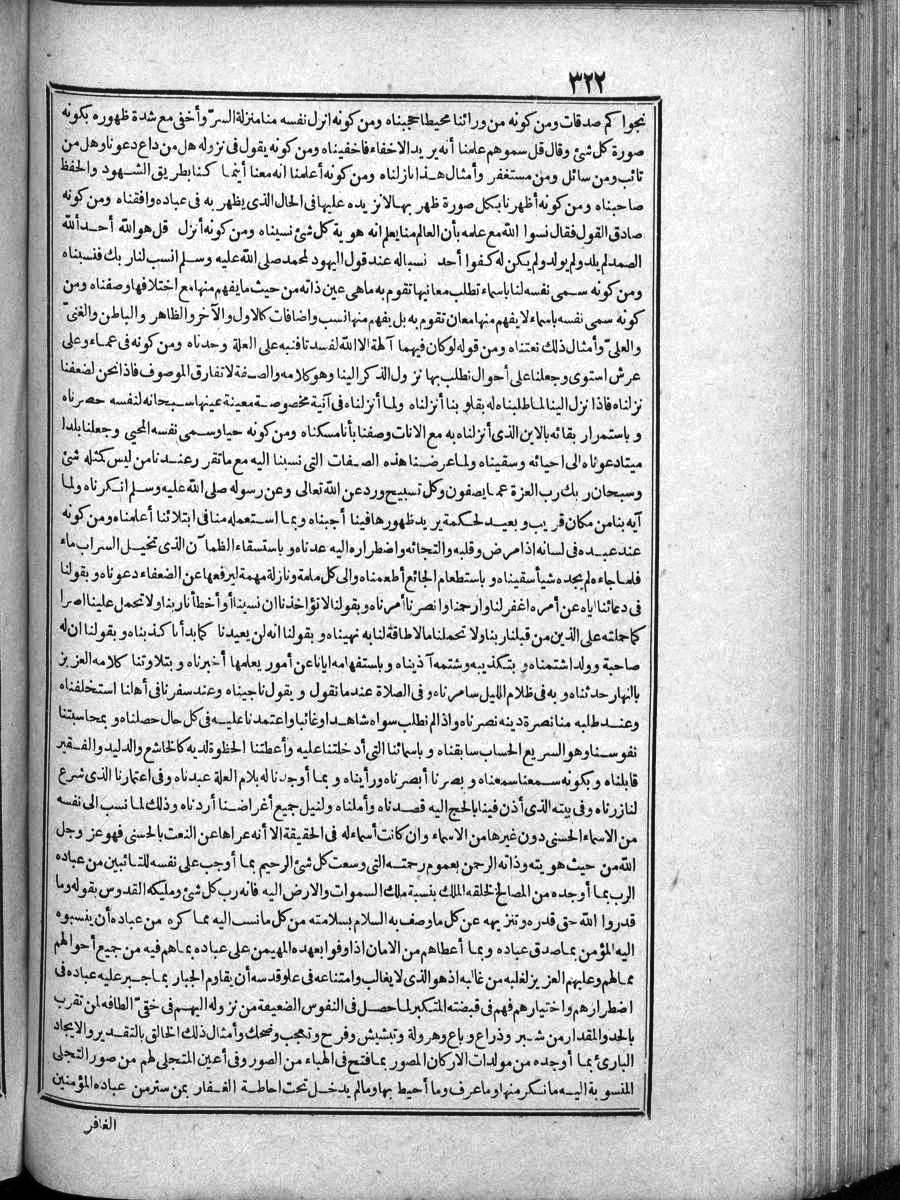 ٣٢٢
نجواكم صدقات ومن كونه من ورائنا محيطا حجبناه ومن كونه انزل نفسه منا منزلة السرّ وأخفى مع شدة ظهوره بكونه
صورة كل شئ وقال قل سموهم علمنا أنه يريد الاخفاء فاخفيناه ومن كونه يقول فى نزوله هل من داع دعونا وهل من
تائب ومن سائل ومن مستغفر وأمثال هذا نازلناه ومن كونه أعلمنا انه معنا أينما كنا بطريق الشهود والحفظ
صاحبناه ومن كونه أظهرنا بكل صورة ظهر بها لانزيده عليها فى الحال الذى يظهر به فى عباده وافقناه ومن كونه
صادق القول فقال نسوا الله مع علمه بأن العالم منا يعلم انه هوية كل شئ نسيناه ومن كونه أنزل قل هو الله أحد الله
الصمد لم يلد ولم يولد ولم يكن له كفوا أحد نسبا له عند قول اليهود لمحمد صلى الله عليه وسلم انسب لنا ربك فنسبناه
ومن كونه سمى نفسه لنا باسماء تطلب معانيها تقوم به ماهى عين ذاته من حيث ما يفهم منها مع اختلافها وصفناه ومن
كونه سمى نفسه باسماء لا يفهم منها معان تقوم به بل يفهم منها نسب واضافات كالاول والآخر والظاهر والباطن والغنىّ
والعلىّ وأمثال ذلك نعتناه ومن قوله لو كان فيهما آلهة الا الله لفسدتا فنبه على العلة وحدناه ومن كونه فى عماء وعلى
عرش استوى وجعلنا على أحوال نطلب بها نزول الذكر الينا وهو كلامه والصفة لا تفارق الموصوف فاذا نحن لضعفنا
نزلناه فاذا نزل الينا لما طلبناه له بقلوبنا أنزلناه ولما أنزلناه فى آنية مخصوصة معينة عينها سبحانه لنفسه حصرناه
وباستمرار بقائه بالاين الذى أنزلناه به مع الانات وصفنا بأنا مسكناه ومن كونه حيا وسمى نفسه المحيى وجعلنا بلدا
ميتا دعوناه الى احيائه وسقيناه ولما عرضنا هذه الصفات التى نسبنا اليه مع ما تقرر وعندنا من ليس كمثله شئ
وسبحان ربك رب العزة عما يصفون وكل تسبيح ورد عن الله تعالى وعن رسوله صلى الله عليه وسلم انكرناه ولما
آيه بنا من مكان قريب وبعيد لحكمة يريد ظهورها فينا أجبناه وبما استعمله منا فى ابتلائنا أعلمناه ومن كونه
عند عبده فى لسانه اذا مرض وقلبه والتجائه واضطراره اليه عدناه وباستسقاء الظمآن الذى تخيل السراب ماء
فلما جاءه لم يجده شيأ سقيناه وباستطعام الجائع أطعمناه والى كل ملمة ونازلة مهمة ليرفعها عن الضعفاء دعوناه وبقولنا
فى دعائنا اياه عن أمره اغفر لنا وارحمنا وانصرنا أمرناه وبقولنا لا تؤاخذنا ان نسينا أو أخطأنا ربنا ولا تحمل علينا اصرا
كما حملته على الذين من قبلنا ربنا ولا تحملنا ما لا طاقة لنا به نهيناه وبقولنا انه لن يعيدنا كما بدأنا كذبناه وبقولنا ان له
صاحبة وولدا شتمناه وبتكذيبه وشتمه آذيناه وباستفهامه ايانا عن أمور يعلمها أخبرناه وبتلاوتنا كلامه العزيز
بالنهار حدثناه وبه فى ظلام الليل سامرناه وفى الصلاة عند ما نقول ويقول ناجيناه وعند سفرنا فى أهلنا استخلفناه
وعند طلبه منا نصرة دينه نصرناه واذا لم نطلب سواه شاهدا وغائبا واعتمدنا عليه فى كل حال حصلناه وبمحاسبتنا
نفوسنا وهو السريع الحساب سابقناه وباسمائنا التى أدخلتنا عليه وأعطتنا الحظوة لديه كالخاشع والذليل والفقير
قابلناه وبكونه سمعنا سمعناه وبصرنا أبصرناه ورأيناه وبما أوجدنا له بلام العلة عبدناه وفى اعتمارنا الذى شرع
لنا زرناه وفى بيته الذى أذن فينا بالحج اليه قصدناه وأملناه ولنيل جميع أغراضنا أردناه وذلك لما نسب الى نفسه
من الاسماء الحسنى دون غيرها من الاسماء وان كانت أسماء له فى الحقيقة الا أنه عراها عن النعت بالحسنى فهو عز وجل
الله من حيث هويته وذاته الرحمن بعموم رحمته التى وسعت كل شئ الرحيم بما أوجب على نفسه للتائبين من عباده
الرب بما أوجده من المصالح لخلقه الملك بنسبة ملك السموات والارض اليه فانه رب كل شئ ومليكه القدوس بقوله وما
قدروا الله حق قدره وتنزيهه عن كل ما وصف به السلام بسلامته من كل ما نسب اليه مما كره من عباده أن ينسبوه
اليه المؤمن بما صدق عباده وبما أعطاهم من الامان اذا وفوا بعهده المهيمن على عباده بما هم فيه من جميع أحوالهم
مما لهم وعليهم العزيز لغلبه من غالبه اذ هو الذى لا يغالب وامتناعه فى علو قدسه أن يقاوم الجبار بما جبر عليه عباده فى
اضطرارهم واختيارهم فهم فى قبضته المتكبر لما حصل فى النفوس الضعيفة من نزوله اليهم فى خفىّ الطافه لمن تقرب
بالحد والمقدار من شبر وذراع وباع وهرولة وتبشيش وفرح وتعجب وضحك وأمثال ذلك الخالق بالتقدير والايجاد
البارئ بما أوجده من مولدات الاركان المصور بما فتح فى الهباء من الصور وفى أعين المتجلى لهم من صور التجلى
المنسوبة اليه ما نكر منها وما عرف وما أحيط بها وما لم يدخل تحت احاطة الغفار بمن ستر من عباده المؤمنين
الغافر